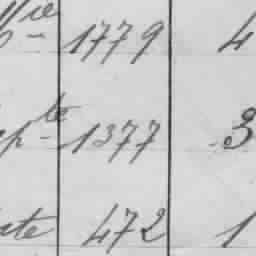 Vie 1779 4
pte 1377 3
ute 472 1